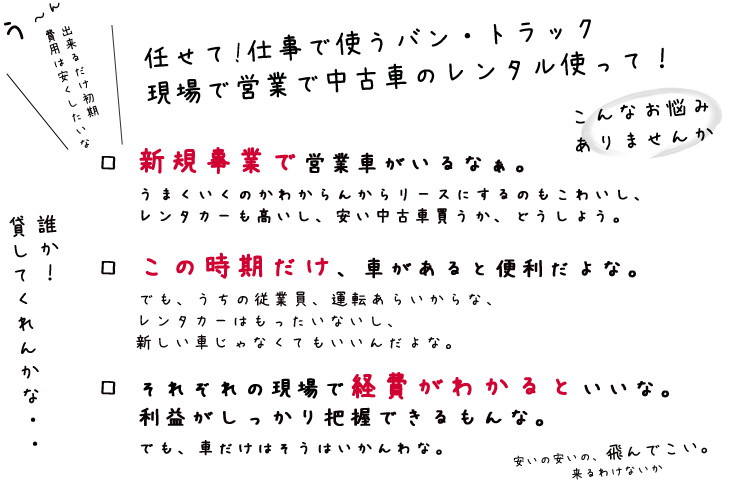 う〜ん
出来るだけ初期
費用は安くしたいな
任せて!仕事で使うバン・トラック
現場で営業で中古車のレンタル使って!
こんなお悩み
ありませんか
新規事業で営業車がいるなぁ。
うまくいくのかわからんからリースにするのもこわいし、
レンタカーも高いし、安い中古車買うか、どうしよう。
誰か!
貸してくれんかな・・
この時期だけ、車があると便利だよな。
でも、うちの従業員、運転あらいからな、
レンタカーはもったいないし、
新しい車じゃなくてもいいんだよな。
それぞれの現場で経費がわかるといいな。
利益がしっかり把握できるもんな。
でも、車だけはそうはいかんわな。
安いの安いの、飛んでこい。
来るわけないか